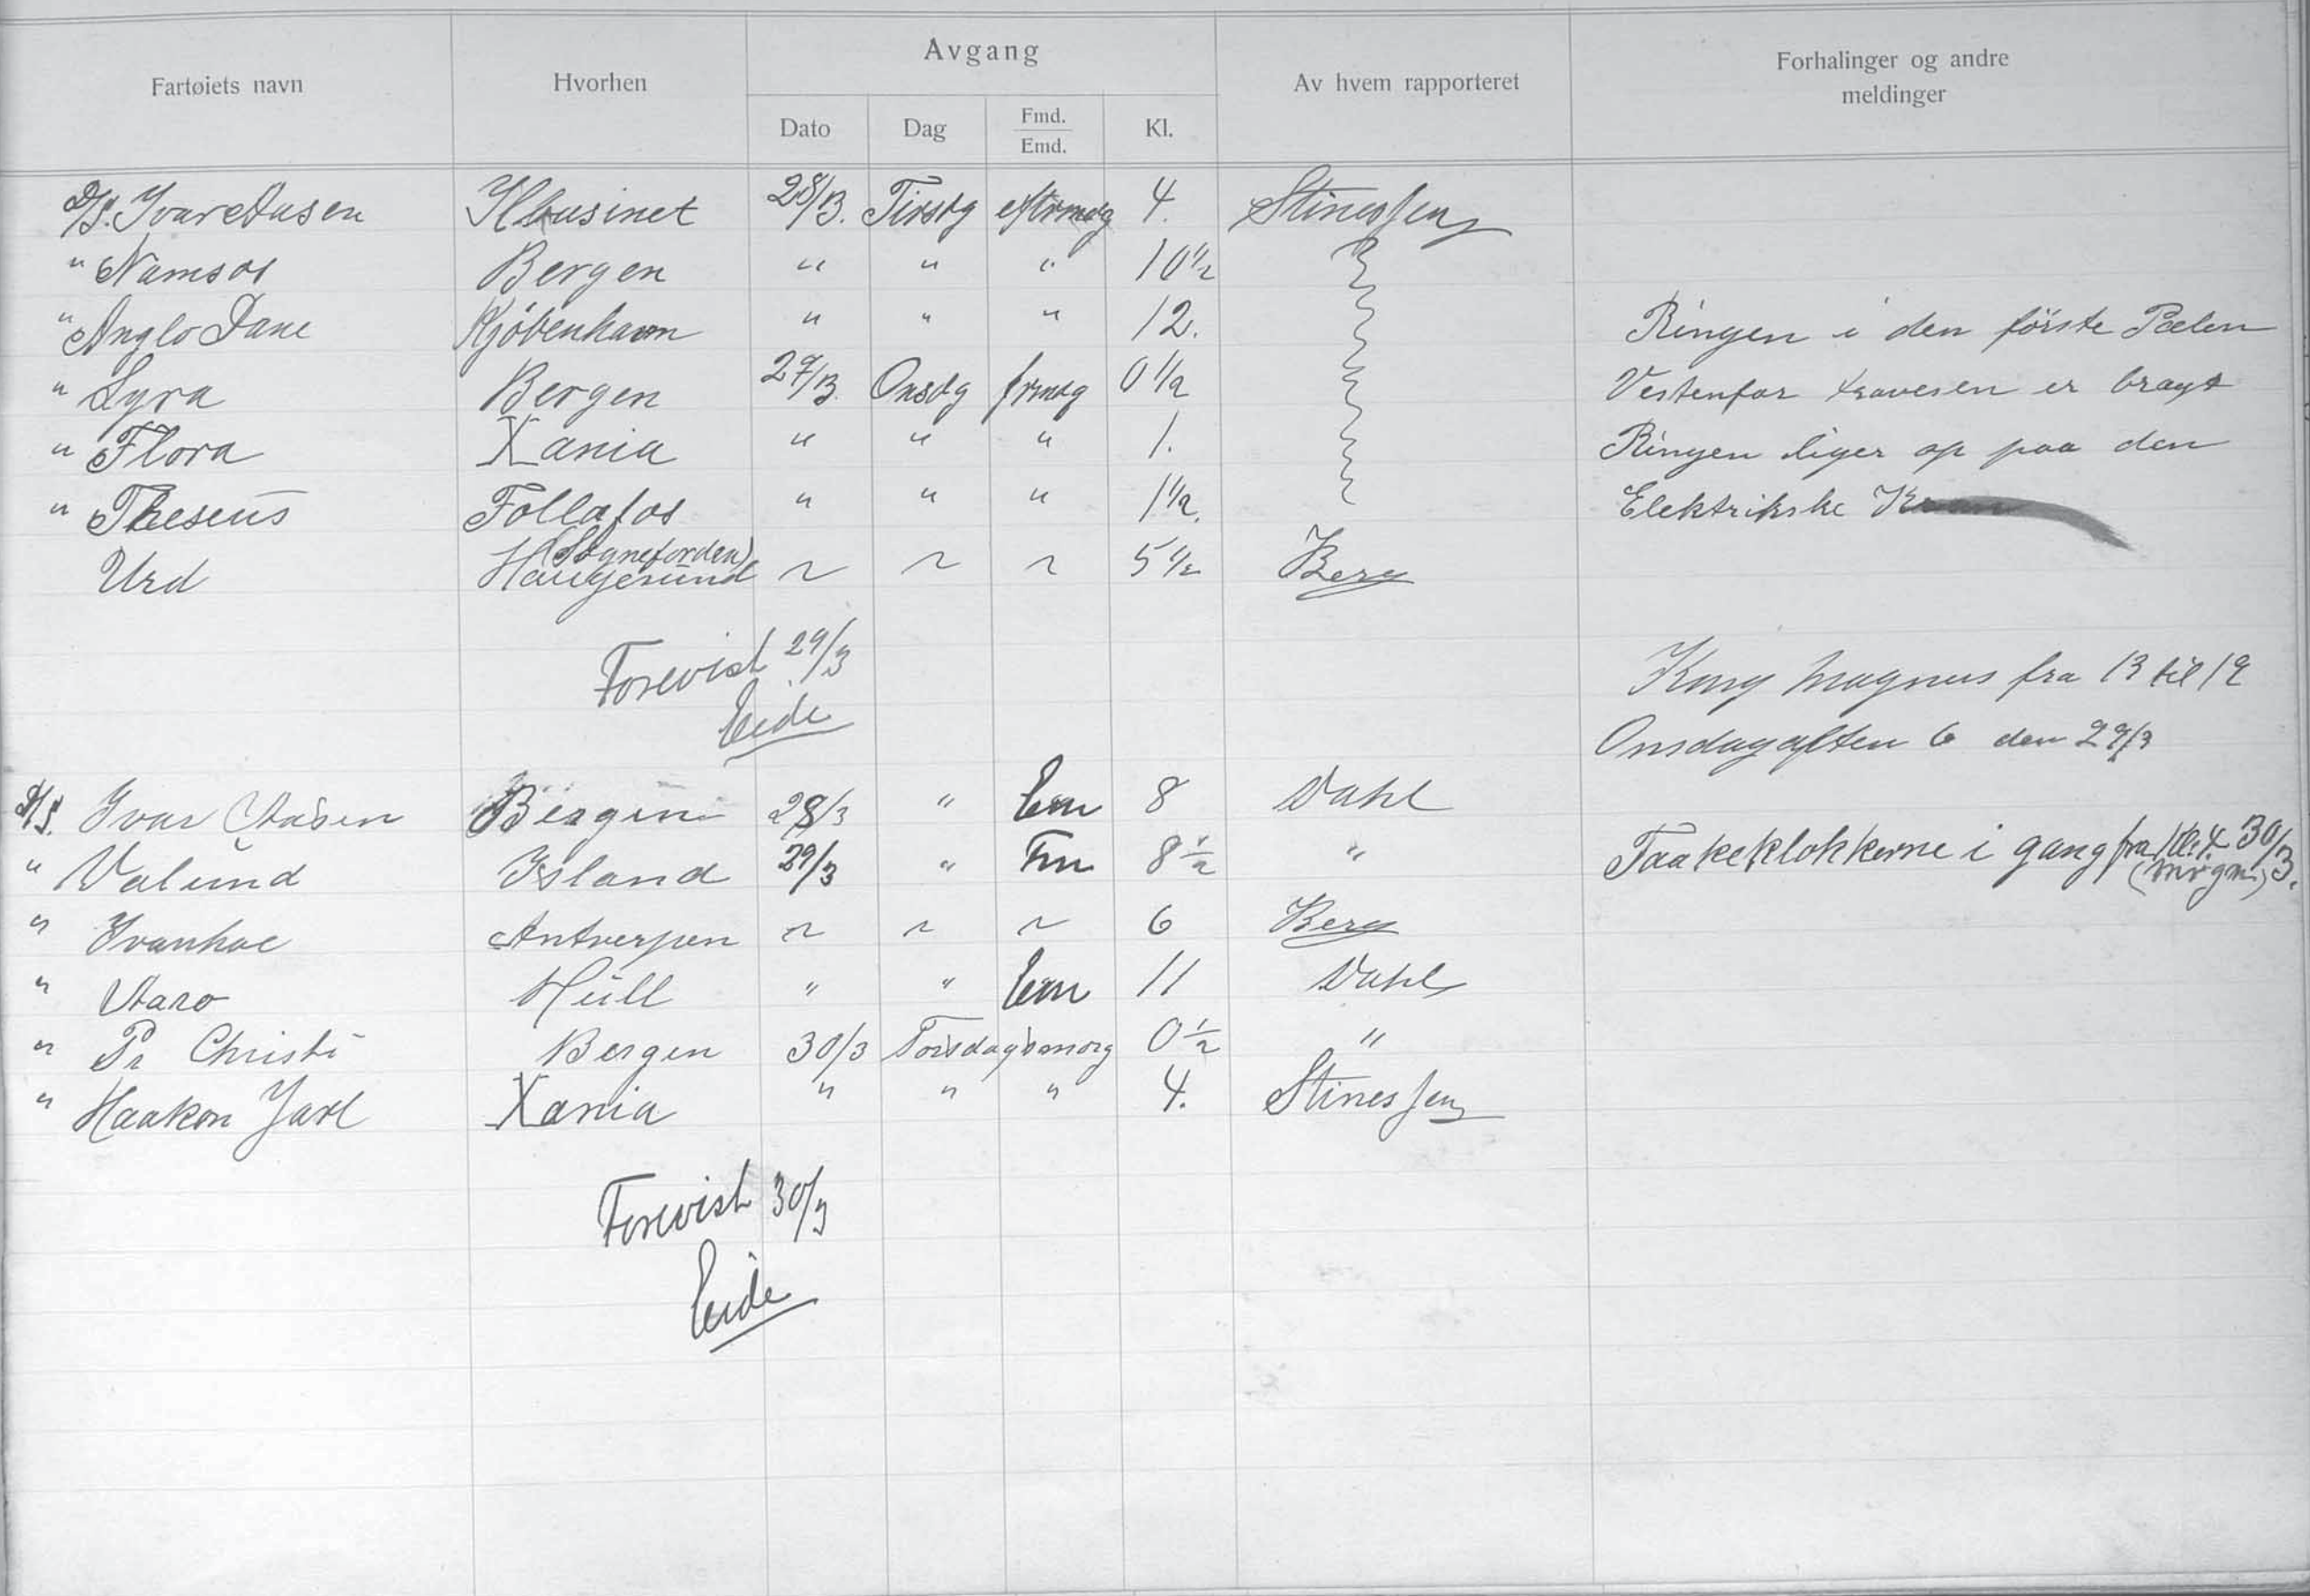 Fartøiets navn Hvorhen Avgang Av hvem rapporteret Forhalinger og andre meldinger
Dato Dag Fmd. Emd. Kl.
D/S. Ivar Aasen Ilbusinet 28/3. Tirsdg eftrmdg 4. Stinessen
" Namsos Bergen " " " 10 1/2
" Anglo Dane Kjöbenhavn " " " 12. Ringen i den förste Pælen
" Lyra Bergen 29/3. Onsdg frmdg 0 1/2 Vestenfor travesen er bragt
" Flora Xania " " " 1. Ringen liger op paa den
" Theseus Follafos " " " 1 1/2. Elektrikske Kran
(Sogneforden)
Urd Haugesund ~ ~ ~ 5 1/2 Berg
Forevist 29/3
Kong Magnus fra 13 til 12
Eide
Onsdagaften 6 den 29/3
D/S. Ivar Aasen Bergen 28/3 " Em 8 Dahl
" Valund Island 29/3 " Fm 8 1/2 " Taakeklokkerne i gang fra Kl. 4 30/3.
(Morgn)
" Ivanhoe Antverpen ~ ~ ~ 6 Berg
" Aaro Hull " " Em 11 Dahl
" Pr Christi Bergen 30/3 Torsdagsmorg 0 1/2 "
" Haakon Jarl Xania " " " 4. Stinessen
Forevist 30/3
Eide